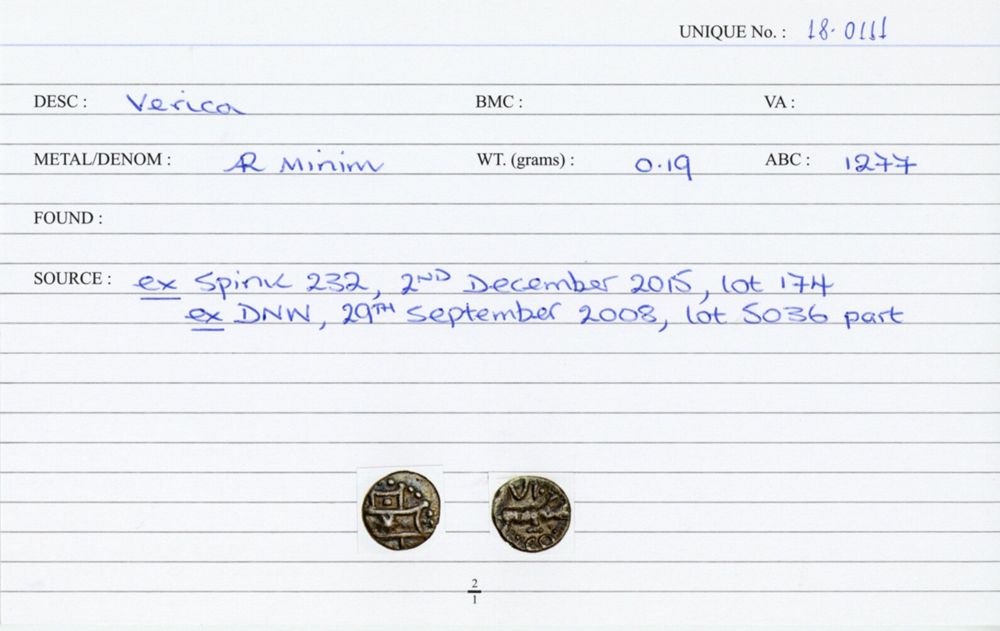 UNIQUE No. : 18.0111
DESC : Verica BMC : VA :
METAL/DENOM : AR Minim WT. (grams) : 0.19 ABC : 1277
FOUND :
SOURCE : ex Spink 232, 2ND December 2015, lot 174
ex DNW, 29TH September 2008, lot 5036 part
2
1